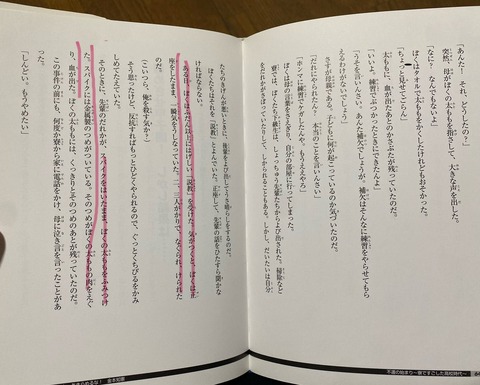 「あんた！　それ、どうしたの？」
突然、母がぼくの太ももを指さして、大きな声を出した。
「なに？　なんでもないよ」
ぼくはタオルで太ももをかくしたけれどもおそかった。
「ちょっと見せてごらん」
太ももに、血が出たあとのかさぶたが残っていたのだ。
「いいよ。練習でぶつかったときにできたんだよ」
「うそを言いんさい。あんた補欠でしょうが。補欠はそんなに練習をやらせてもら
えるわけがないでしょう」
さすが母親である。子どもに何が起こっているのか気づいたのだ。
「だれにやられたん？　本当のことを言いんさい」
「ホンマに練習でやったんじゃけん。もうええやろ」
ぼくは母の言葉をさえぎり、自分の部屋に行ってしまった。
寮では、ぼくたち下級生は、しょっちゅう先輩たちからよび出された。掃除など
をだれかがさぼっていたりして、しかられることもある。しかし、だいたいは自分
たちのきげんが悪いときに、後輩をよび出してうさ晴らしをするのだ。
ぼくたちはそれを「説教」とよんでいた。正座して、先輩の話をひたすら聞かな
ければならない。
ある日、ぼくはふだん以上にはげしい「説教」を受けた。気がつくと、ぼくは正
座をしたまま、一瞬気をうしなっていた。二、三人がかりで、なぐられ、けられた
（こいつら、俺を殺す気か？）
そう思ったけど、反抗すればもっとひどくやられるので、ぐっとくちびるをかみ
しめてたえていた。
そのときに、先輩のだれかが、スパイクをはいたまま、ぼくの太ももをふみつけ
た。スパイクには金属製のつめがついている。そのつめがぼくの太ももの肉をえぐ
り、血が出た。ぼくの太ももには、くっきりとそのつめのあとが残っていたのだ。
この事件の前にも、何度か寮から家に電話をかけ、母に泣き言を言ったことがあ
った。
「しんどい。もうやめたい」
不遇の始まり〜寮ですごした高校時代〜
金本知憲